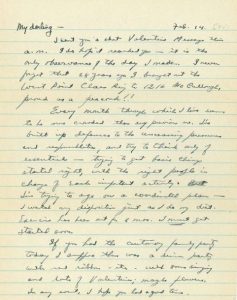 My darling — Feb. 14.
I sent you a short Valentine Message this
a.m. I do hope it reached you — it is the
only observance of the day I made. I never
forget that 28 years ago I brought out the
West Point Class ring to 1216 McCullough,
proud as a peacock!!
Every month things which I love seem
to be more crowded than any previous. I've
built up defenses to the unceasing pressures
and responsibilities, and try to think only of
essentials — trying to get basic things
started right, with the right people in
charge of each important activity.
I'm trying to age on a coordinated plan —
I visited my dispositions just as to my visit.
has been at for a mos. I must get
started soon.
If you had the customary family party
today I suppose there was a dinner party
with red ribbon, etc. — with some
and lots of Valentines; maybe flowers.
In any event, I hope you had a good time